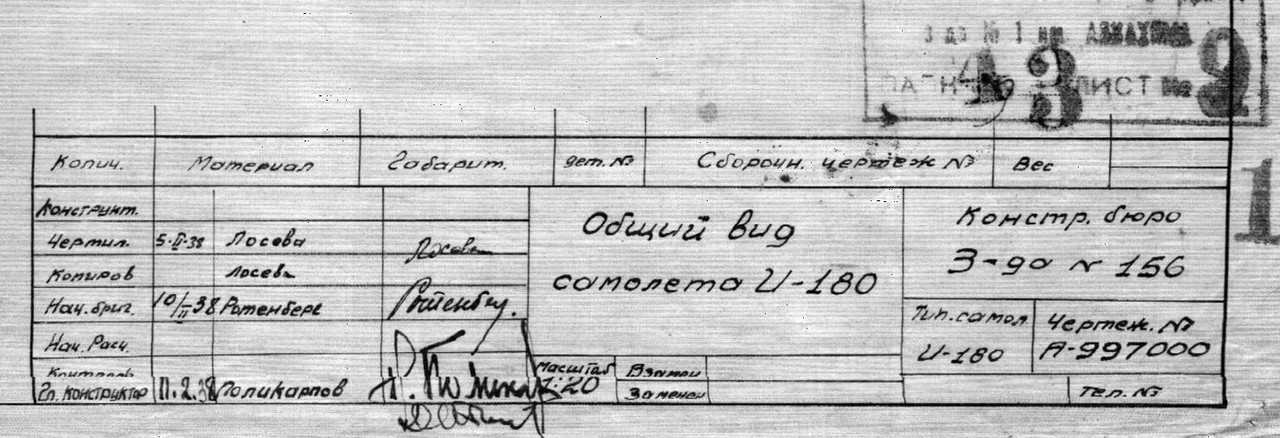 № 1 им. АВИАХИМА
ЛИСТ №
Колич. Материал Габарит. дет. № Сборочн. чертеж № Вес
Конструкт.
Чертил. 5-II-38 Лосева
Копиров Лосева
Нач. бриг. 10/II 38 Ротенберг
Нач. Расч.
Гл. конструктор 11.2.38 Поликарпов
Общий вид
самолета И-180
Масштаб
1:20
Взамен
Заменен
Констр. бюро
З-да № 156
Тип. самол
И-180
Чертеж. №
А-997000
Тел. №
1